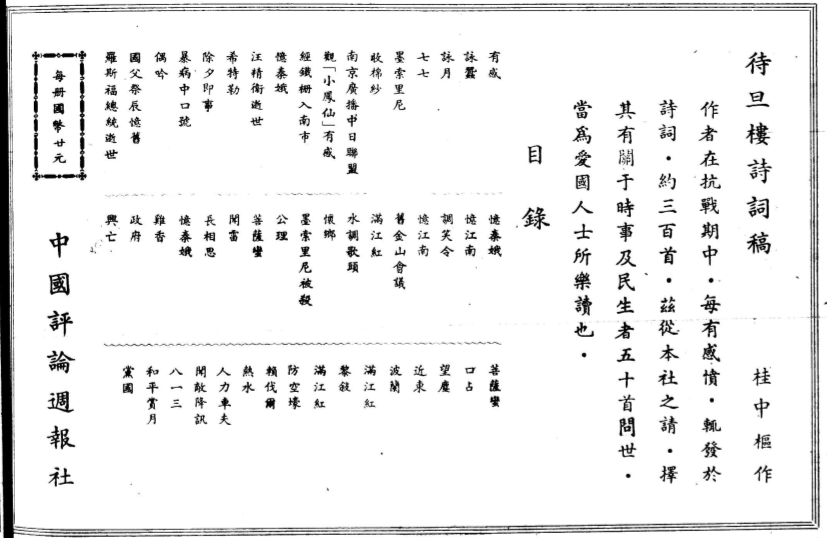 待旦樓詩詞稿
桂中樞作
作者在抗戰期中・每有感憤・輒發於
詩詞・約三百首・茲從本社之請・擇
其有關于時事及民生者五十首問世・
當爲愛國人士所樂讀也・
目錄
有感
詠蠶
詠月
七七
墨索里尼
收棉紗
南京廣播中日聯盟
觀「小鳳仙」有感
經鐵柵入南市
憶秦娥
汪精衛逝世
希特勒
除夕即事
暴病中口號
偶吟
國父祭辰憶舊
羅斯福總統逝世
憶秦娥
憶江南
調笑令
憶江南
舊金山會議
滿江紅
水調歌頭
懷鄉
墨索里尼被殺
公理
菩薩蠻
聞雷
長相思
憶秦娥
雞香
政府
興亡
菩薩蠻
口占
望塵
近東
波蘭
滿江紅
滿江紅
防空壕
賴伐爾
熱水
人力車夫
聞敵降訊
八一三
和平賞月
黨國
每册國幣廿元
中國評論週報社